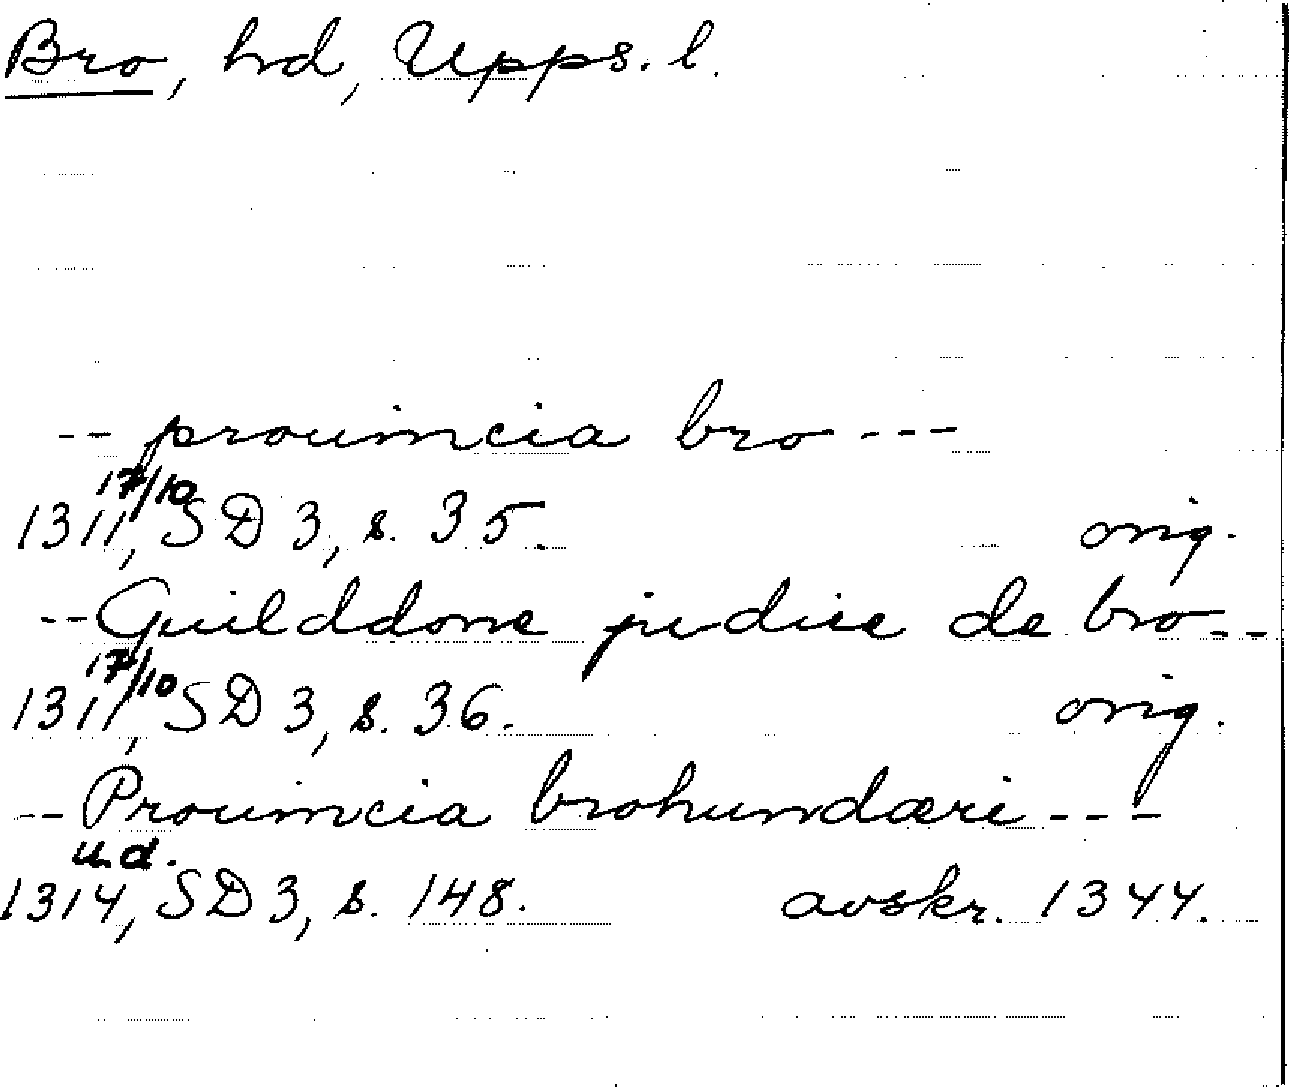 Bro, hd, Upps. l.
-- prouincia bro ---
17/10
1311, SD 3, s. 35. orig.
-- Guilddone judice de bro --
17/10
1311, SD 3, s. 36. orig.
-- Prouincia brohundæri ---
u.d.
1314, SD 3, s. 148. avskr. 1344.